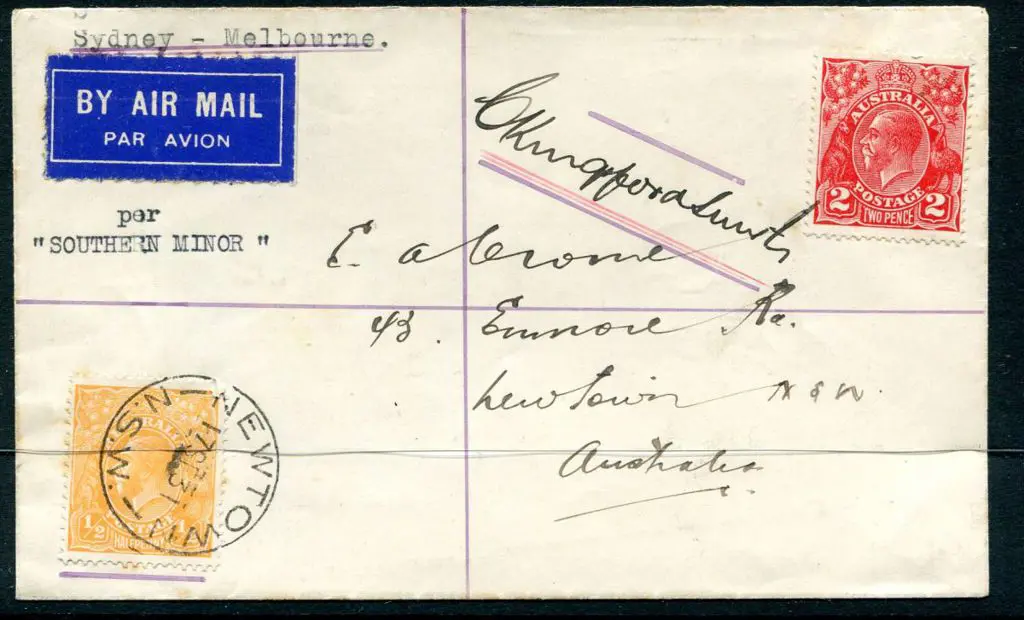 Sydney - Melbourne.
BY AIR MAIL
PAR AVION
per
"SOUTHERN MINOR"
CKingsfordSmith
AUSTRALIA
POSTAGE
2 TWO PENCE 2
E a Crome
43. Enmore Rd.
Newtown N S W.
Australia
NEWTOWN N.S.W.
AUSTRALIA
POSTAGE
1/2 HALFPENNY